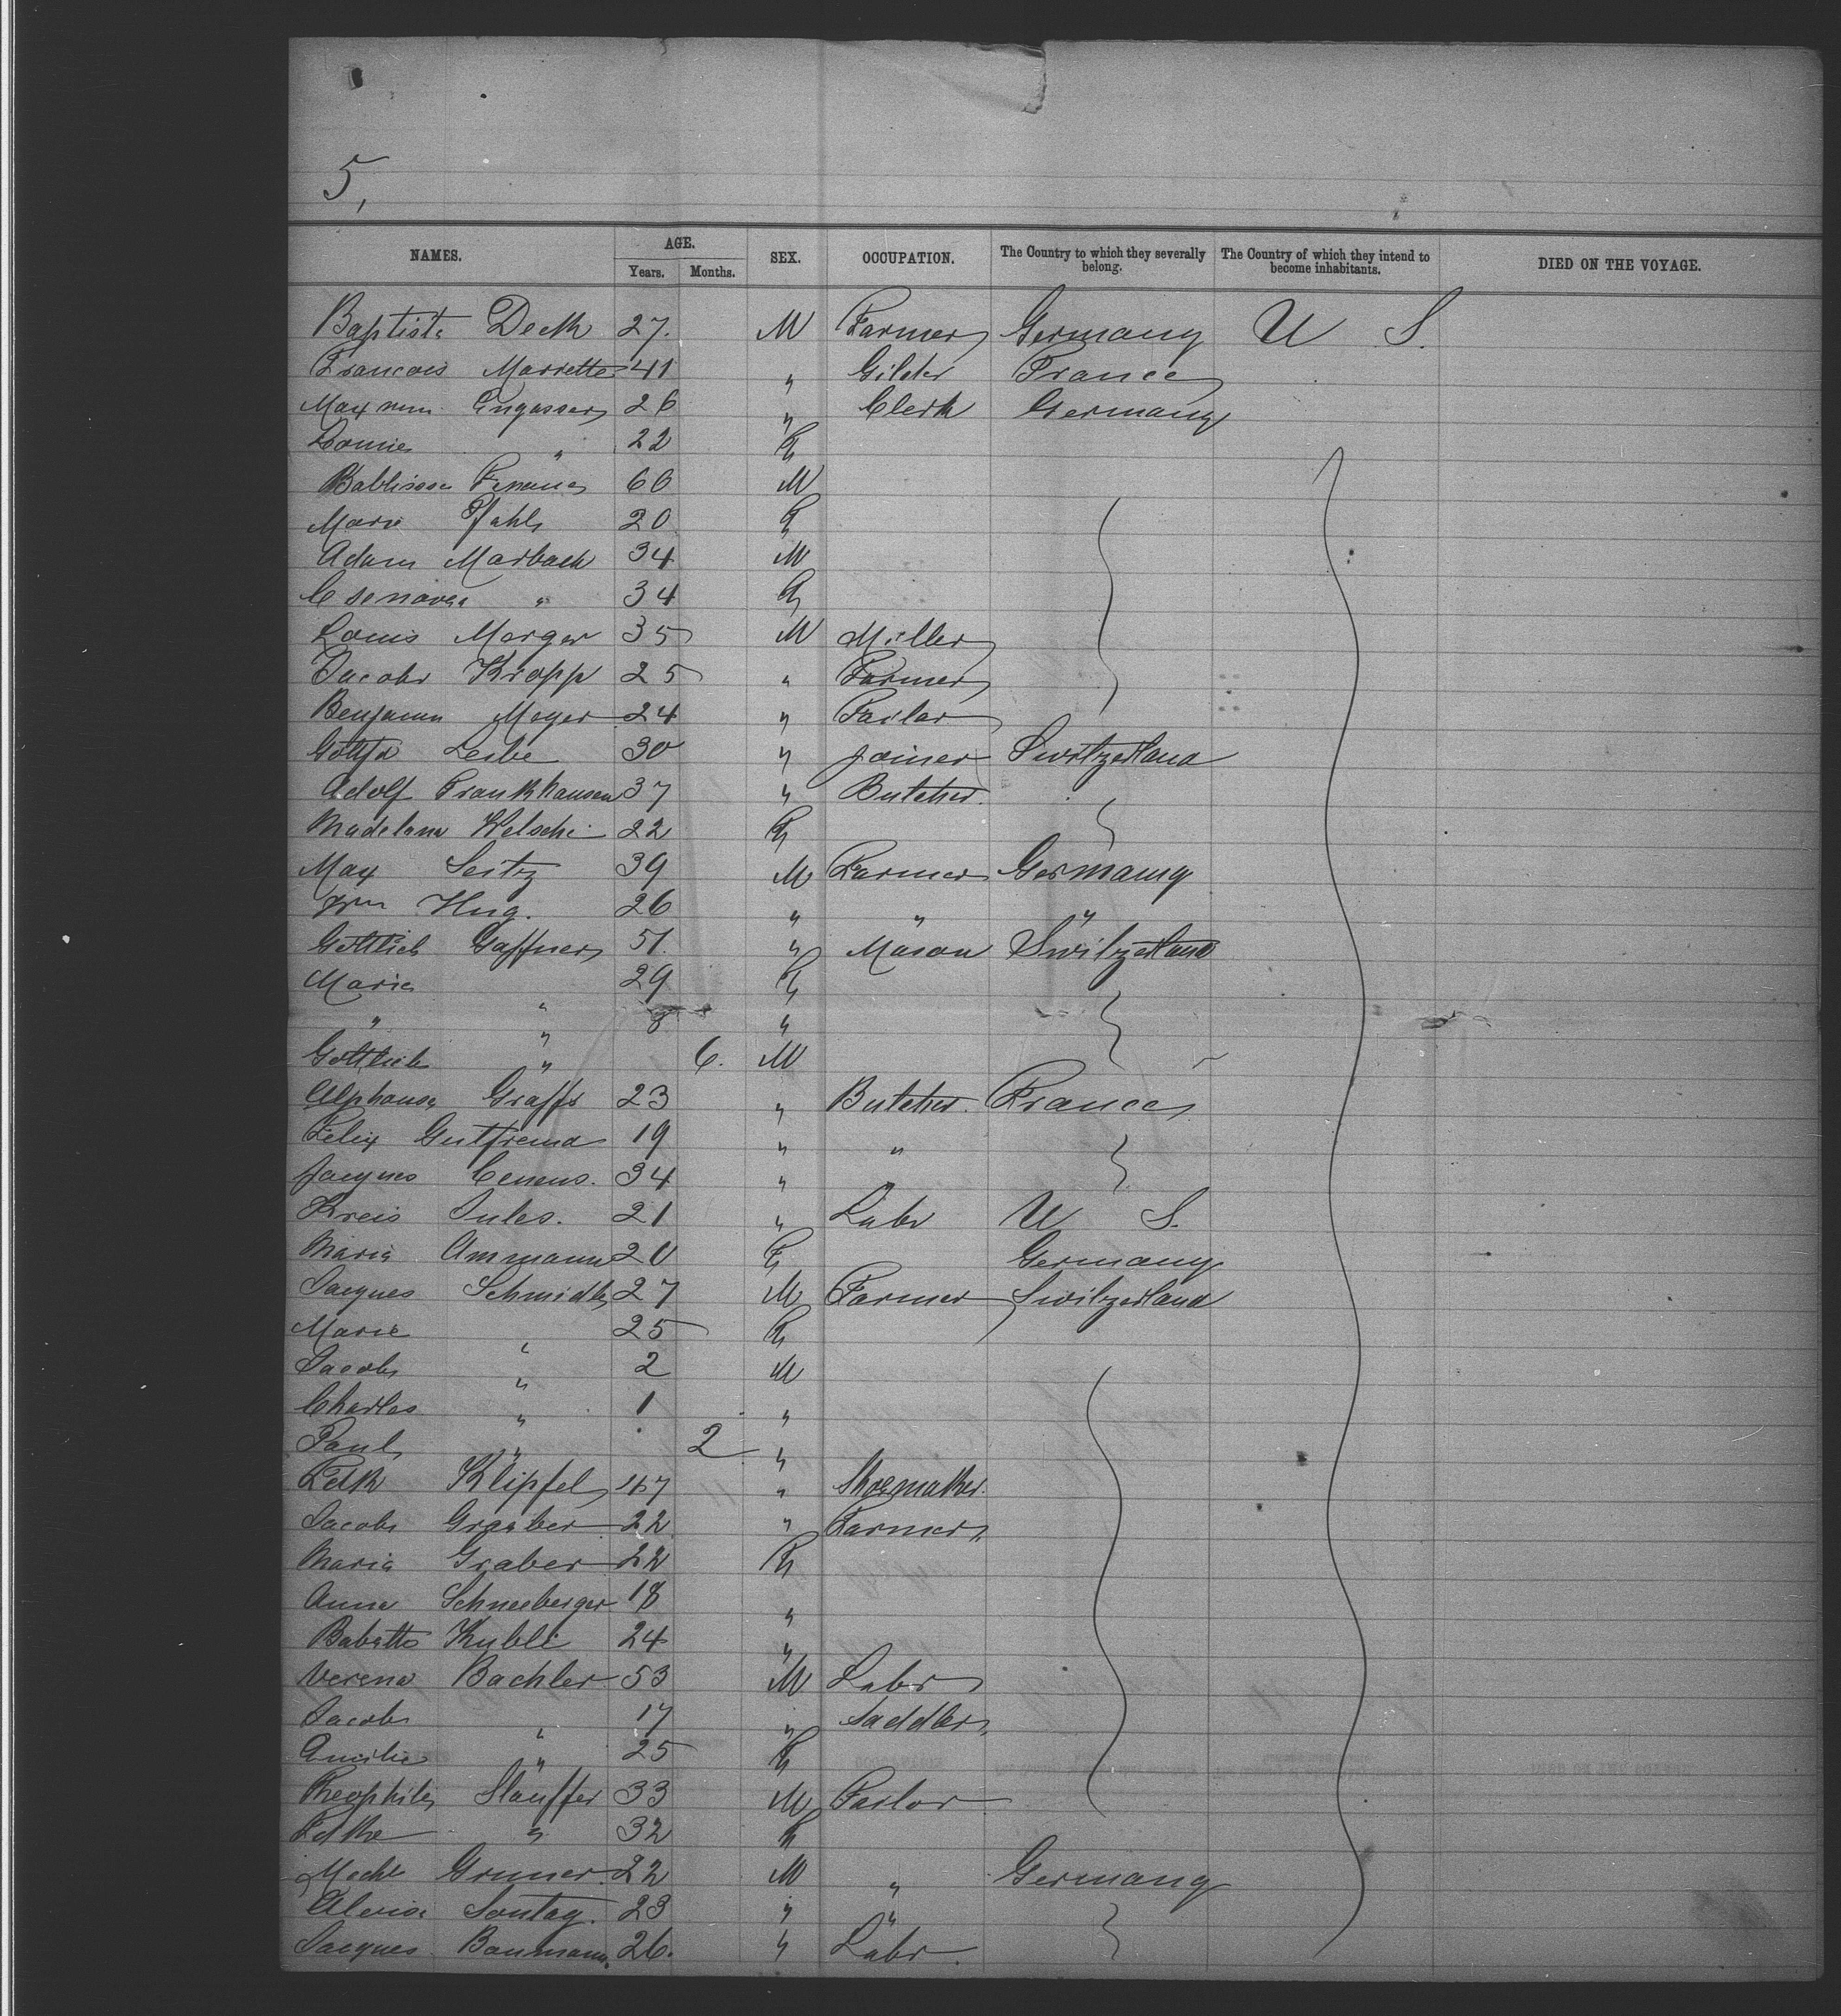 5,
NAMES. AGE. Years. Months. SEX. OCCUPATION. The Country to which they severally belong. The Country of which they intend to become inhabitants. DIED ON THE VOYAGE.
Baptiste Deck 27. M Farmer Germany U S.
Francois Marrette 41 " Gilder France
Engasser 26 " Clerk Germany
Louise " 22 F
60 M
Marie Pfahl 20 F
Adam Marbach 34 M
" 34 F
Louis Merger 35 M Miller
Jacob Kropp 25 " Farmer
Benjamin Meyer 24 " Tailor
Leibe 30 " Joiner Switzerland
Adolf Frankhauser 37 " Butcher.
Madelana Welschi 22 F
Max Seitz 39 M Farmer Germany
Wm Hug. 26 " " "
Gottlieb Gaffner 51. " Mason Switzerland
Marie " 29 F
" " 8 "
Gottlieb " 6. M
Alphonse Graff 23 " Butcher. France
Felix Gutfreund 19 " "
Jacques 34 "
Kreis Jules. 21 " Labr U S.
Maria Ammann 20 F Germany
Jacques Schmidt 27 M Farmer Switzerland
Marie " 25 F
Jacob " 2 M
Charles " 1 "
Paul " 2 "
Klipfel 47 " Shoemaker.
Jacob Graber 22 " Farmer
Maria Graber 22 F
Anna Schneeberger 18 "
Babette Kybli 24 "
Verena Bachler 53 M Labr
Jacob " 17 " Saddler
Emilie " 25 F
Theophile Stauffer 33 M Tailor
" 32 F
Gruner 22 M " Germany
Sontag. 23 " "
Jacques Baumann. 26. " Labr.